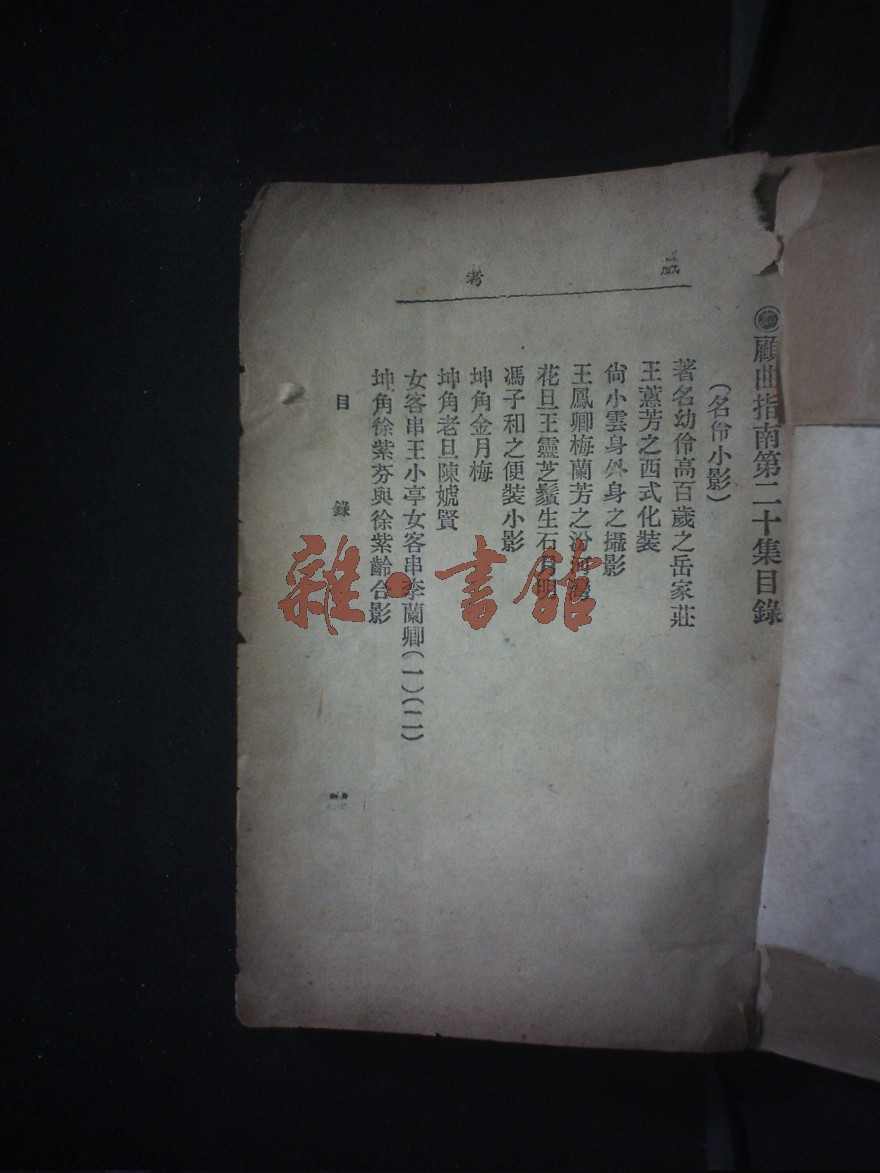 ◉顧曲指南第二十集目錄
（名伶小影）
著名幼伶高百歲之岳家莊
王蕙芳之西式化裝
尙小雲身外身之攝影
王鳳卿梅蘭芳之汾河灣
花旦王靈芝鬚生石月明
馮子和之便裝小影
坤角金月梅
坤角老旦陳娍賢
女客串王小亭女客串李蘭卿（一）（二）
坤角徐紫芬與徐紫齡合影
考
目錄
雜·書館